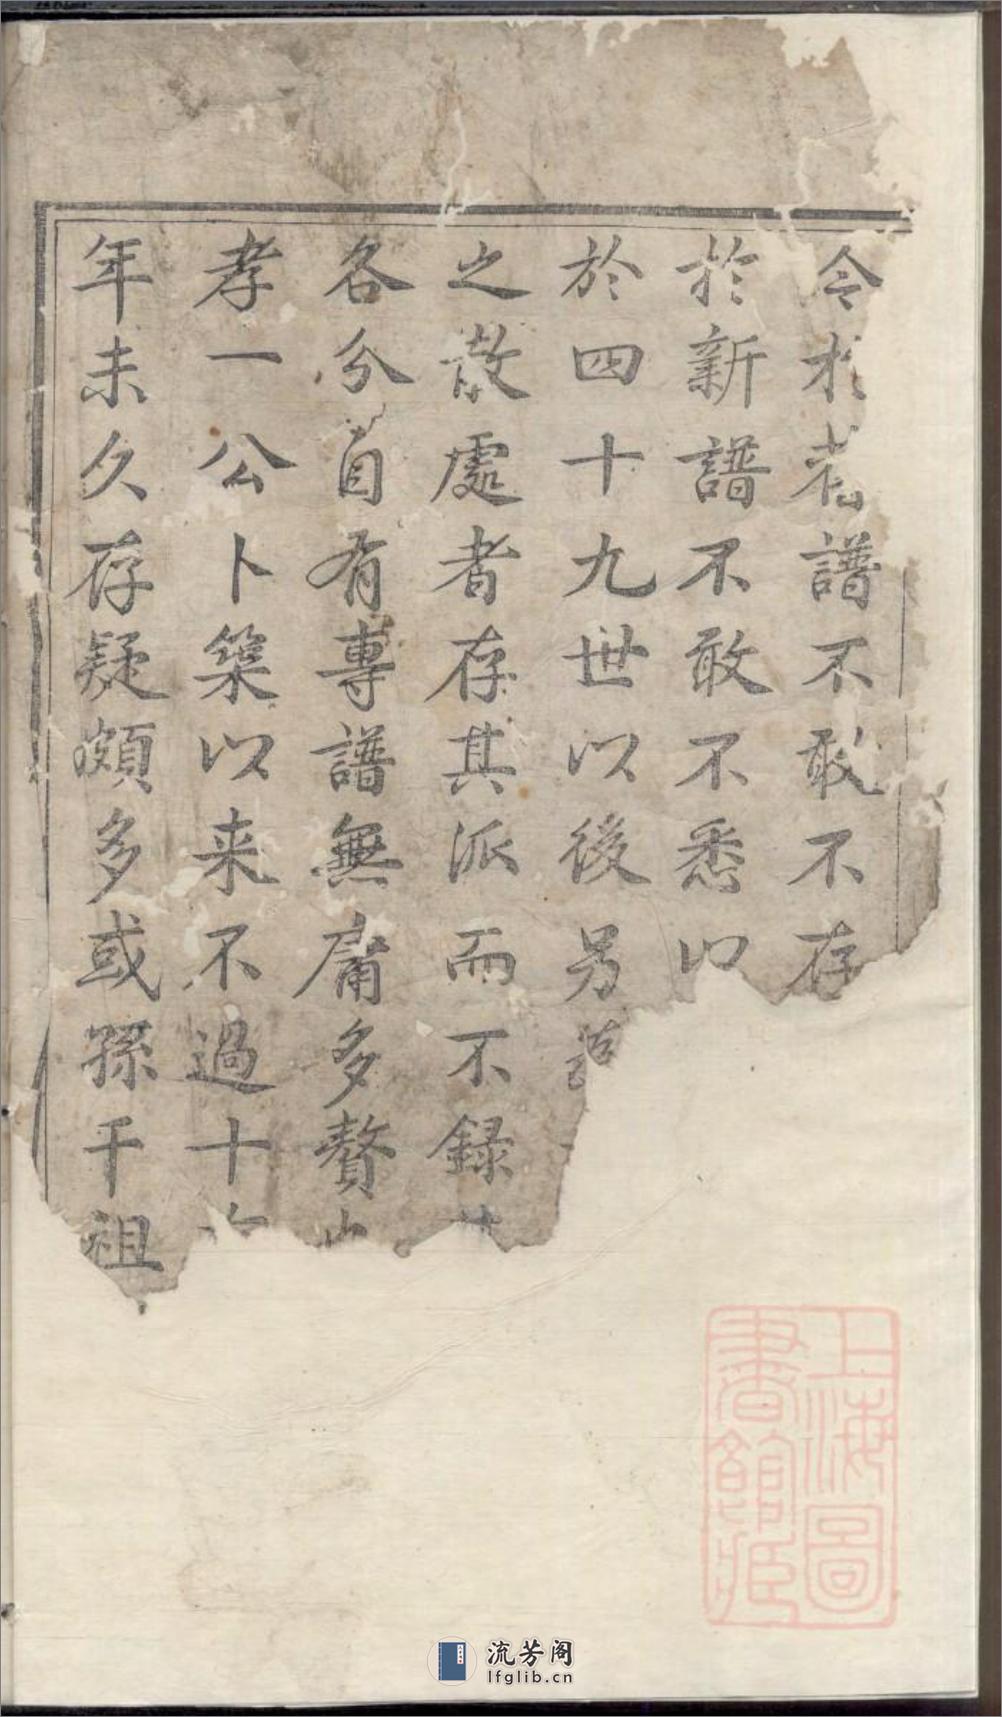 今於老譜不敢不存
於新譜不敢不悉以
於四十九世以後另
之散處者存其派而不録
各分自有專譜無庸多贅
孝一公卜築以来不過十
年未久存疑頗多或孫干祖
上海圖
書館藏
流芳阁
lfglib.cn